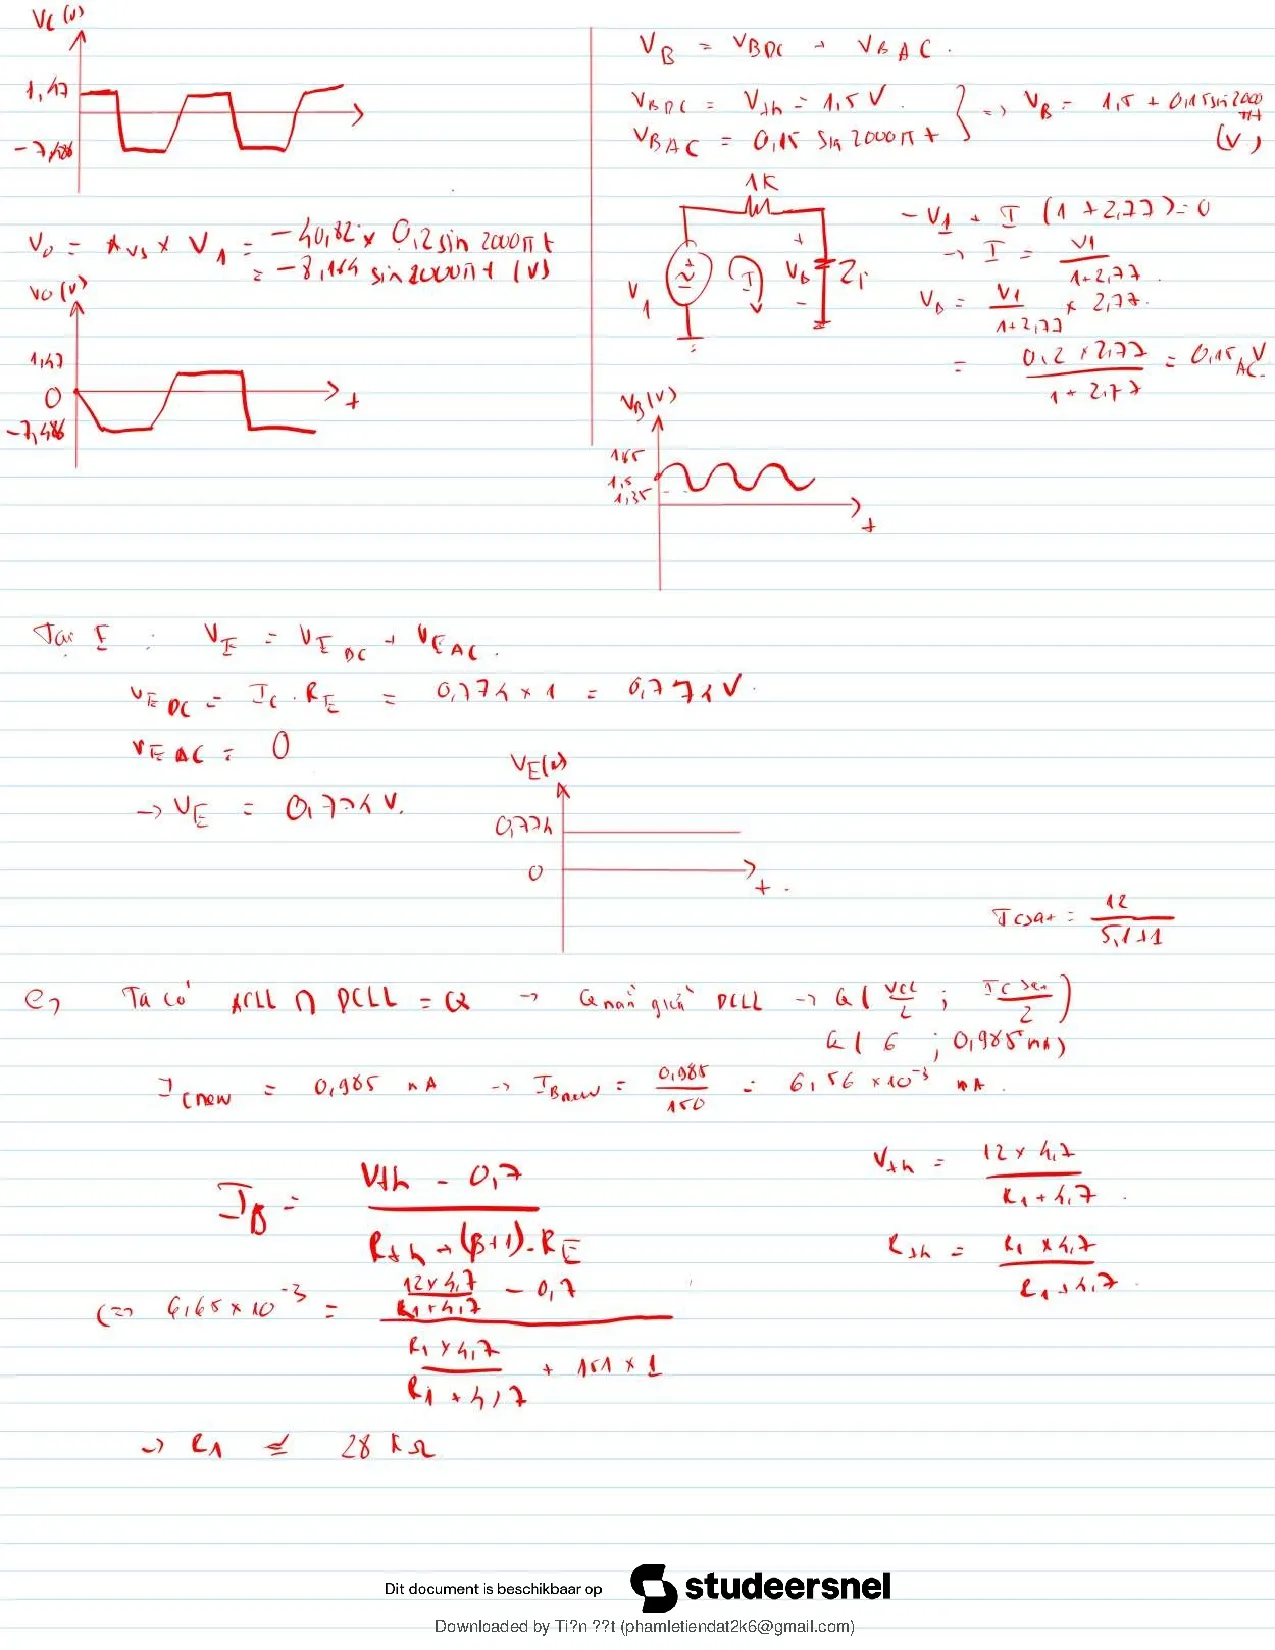 Vc (v)
1,47
-7,486
Vo = Avs x V1 = -40,82 x 0,2 sin 2000πt
= -8,164 sin 2000πt (V)
Vo (v)
1,47
0
-7,486
t
VB = VBDC + VBAC.
VBDC = Vth = 1,5 V.
VBAC = 0,15 sin 2000πt
=> VB = 1,5 + 0,15 sin 2000πt (V)
1K
V1
I
+
Vb
-
Zi
-V1 + I (1 + 2,77) = 0
→ I = V1 / (1+2,77).
Vb = V1 / (1+2,77) x 2,77.
= (0,2 x 2,77) / (1 + 2,77) = 0,15 V AC.
VB (V)
1,65
1,5
1,35
t
Tại E : VE = VE DC + VE AC.
VE DC = IC . RE = 0,774 x 1 = 0,774 V.
VE AC = 0
→ VE = 0,774 V.
VE (v)
0,774
0
t.
ICsat = 12 / (5,1+1)
e, Ta có ACLL ∩ DCLL = Q → Q nằm giữa DCLL → Q ( VCC/2 ; ICsat/2 )
Q ( 6 ; 0,985 mA)
ICnew = 0,985 mA → IBnew = 0,985 / 150 = 6,56 x 10^-3 mA.
Vth = (12 x 4,7) / (R1 + 4,7).
IB = (Vth - 0,7) / (Rth + (β+1).RE)
Rth = (R1 x 4,7) / (R1 + 4,7).
(=> 6,65 x 10^-3 = ((12 x 4,7)/(R1+4,7) - 0,7) / ((R1 x 4,7)/(R1 + 4,7) + 151 x 1)
→ R1 ≤ 28 kΩ
Dit document is beschikbaar op studeersnel
Downloaded by Ti?n ??t (phamletiendat2k6@gmail.com)